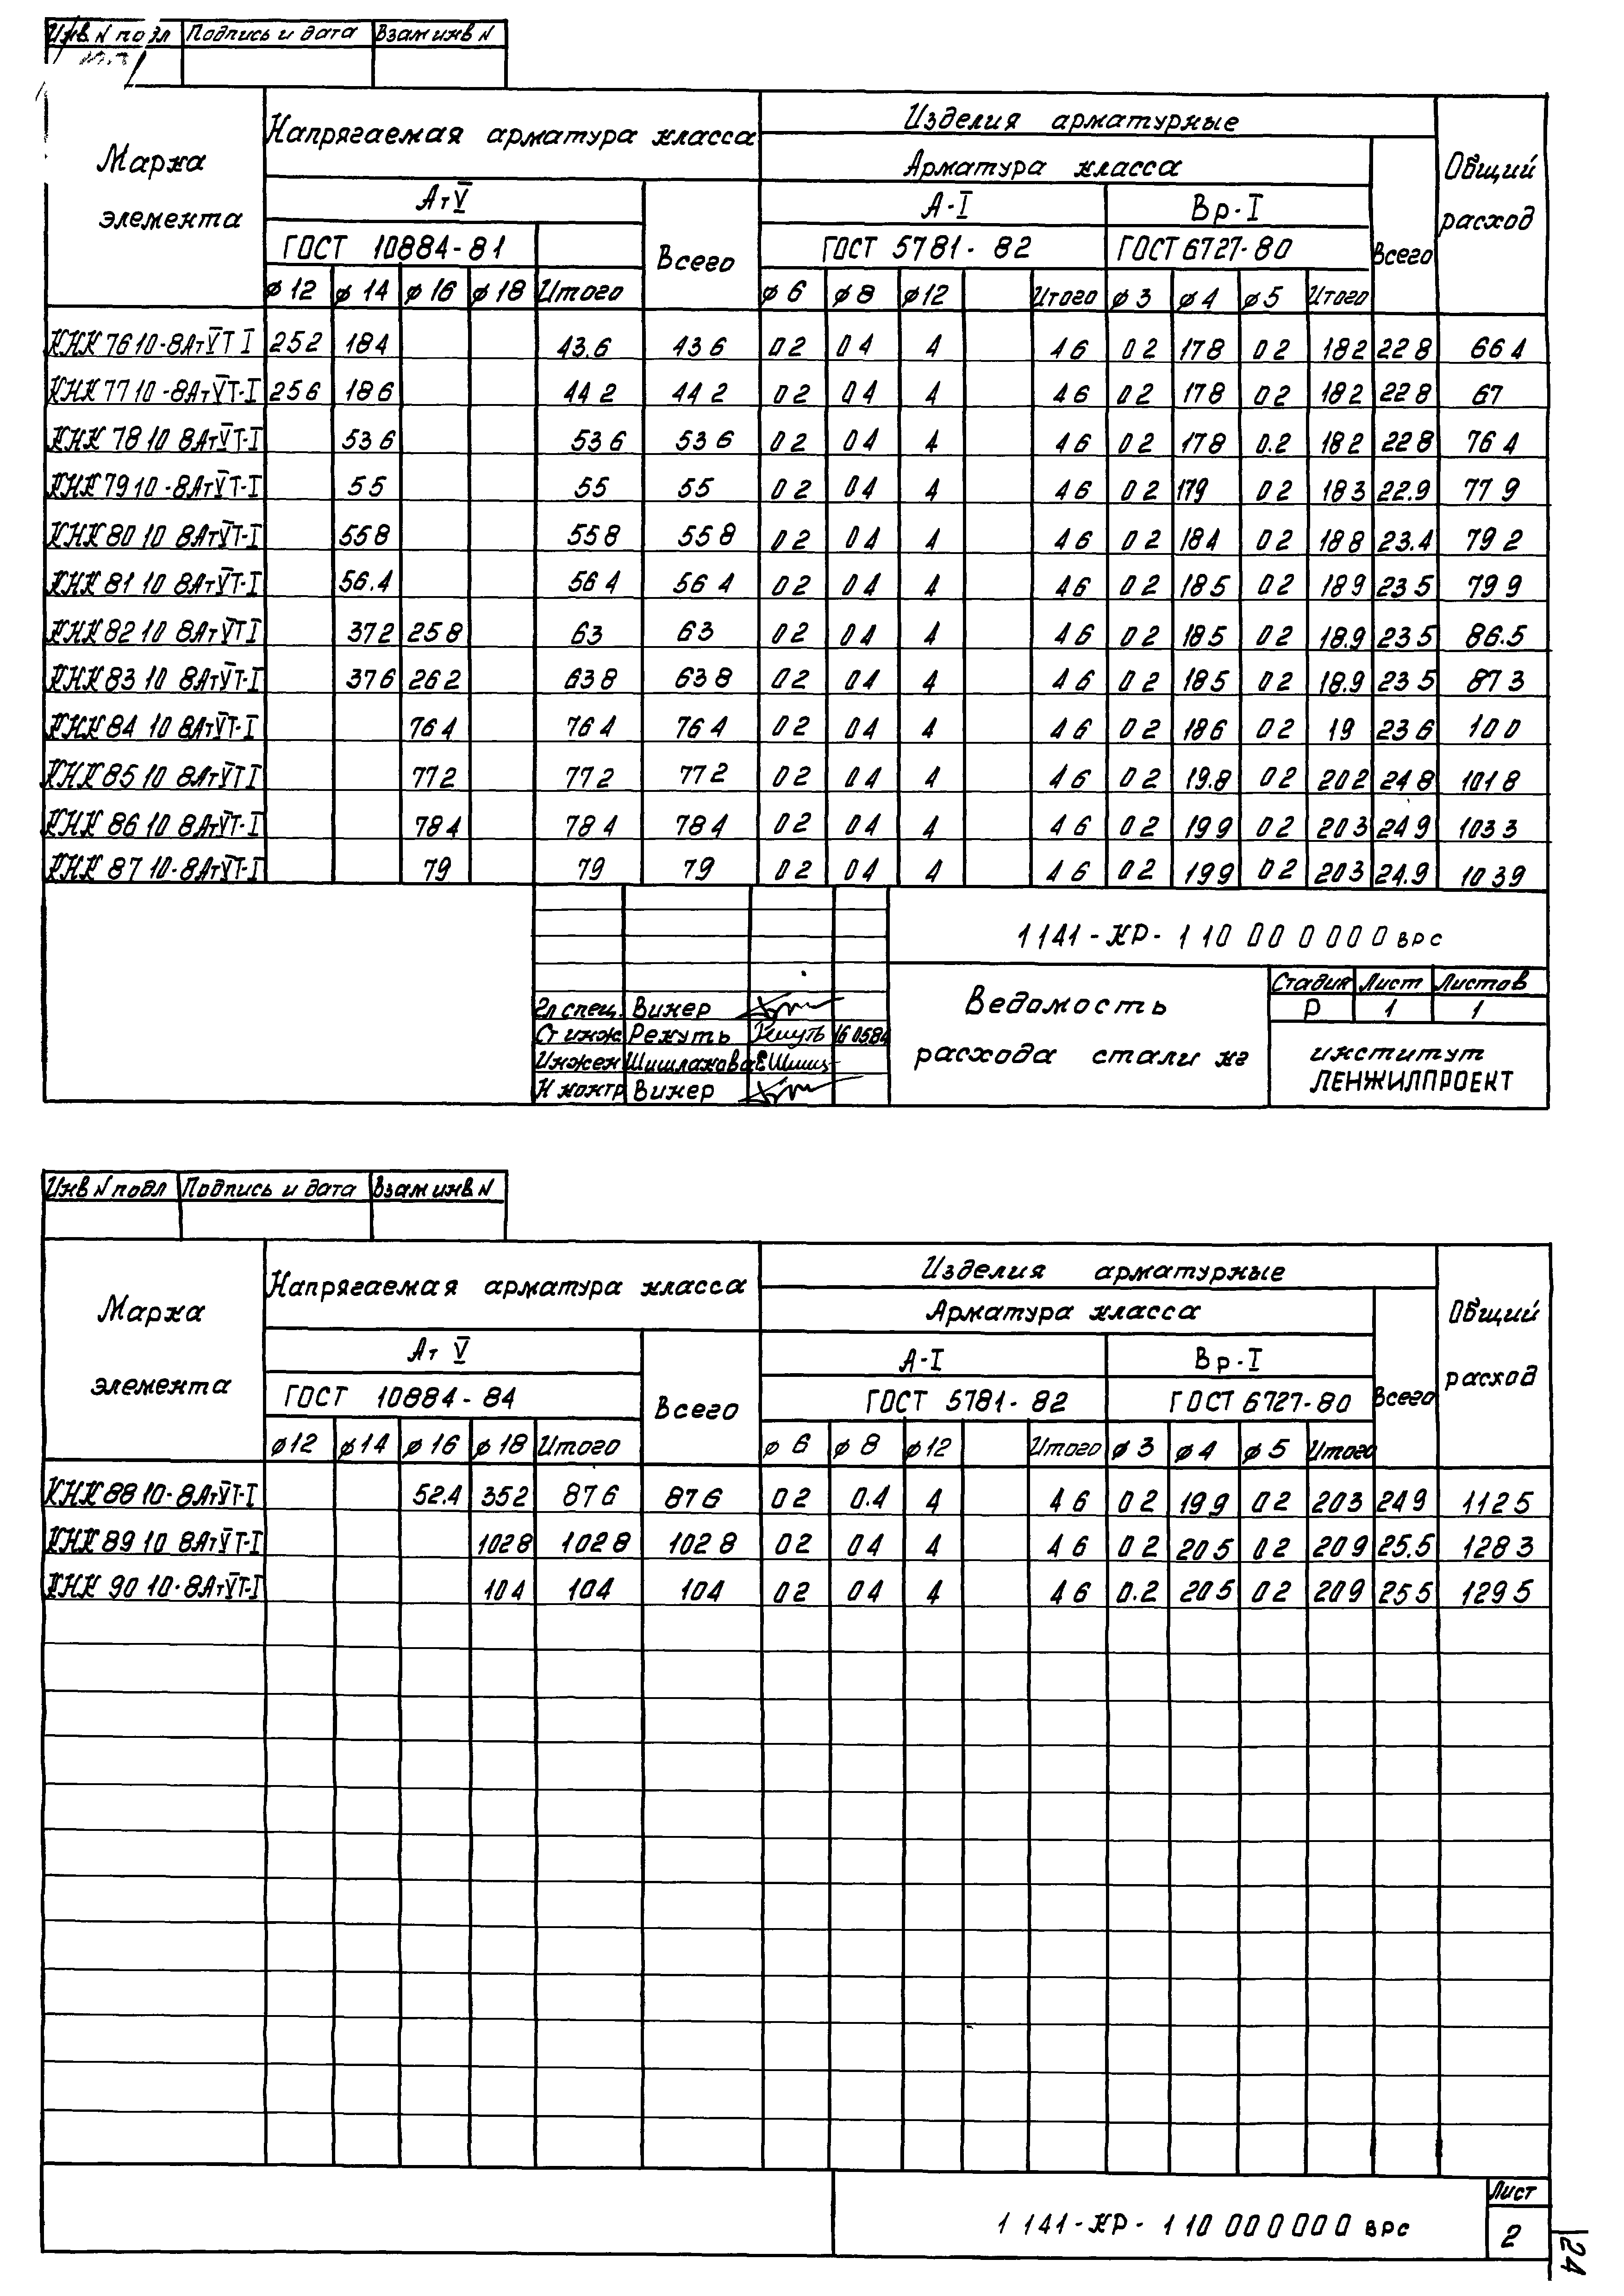 Инв N подл Подпись и дата Взам инв N
Марка элемента Напрягаемая арматура класса Изделия арматурные Общий расход
Арматура класса
Ат V Всего А-I Вр-I Всего
ГОСТ 10884-81 ГОСТ 5781-82 ГОСТ 6727-80
ø12 ø14 ø16 ø18 Итого ø6 ø8 ø12 Итого ø3 ø4 ø5 Итого
КНК 76 10-8АтVТ I 25 2 18 4 43.6 43 6 0 2 0 4 4 4 6 0 2 17 8 0 2 18 2 22 8 66 4
КНК 77 10-8АтVТ-I 25 6 18 6 44 2 44 2 0 2 0 4 4 4 6 0 2 17 8 0 2 18 2 22 8 67
КНК 78 10 8АтVТ-I 53 6 53 6 53 6 0 2 0 4 4 4 6 0 2 17 8 0.2 18 2 22 8 76 4
КНК 79 10-8АтVТ-I 55 55 55 0 2 0 4 4 4 6 0 2 17 9 0 2 18 3 22.9 77 9
КНК 80 10 8АтVТ-I 55 8 55 8 55 8 0 2 0 4 4 4 6 0 2 18 4 0 2 18 8 23.4 79 2
КНК 81 10 8АтVТ-I 56.4 56 4 56 4 0 2 0 4 4 4 6 0 2 18 5 0 2 18 9 23 5 79 9
КНК 82 10 8АтVТ I 37 2 25 8 63 63 0 2 0 4 4 4 6 0 2 18.5 0 2 18.9 23 5 86.5
КНК 83 10 8АтVТ-I 37 6 26 2 63 8 63 8 0 2 0 4 4 4 6 0 2 18 5 0 2 18.9 23 5 87 3
КНК 84 10 8АтVТ-I 76 4 76 4 76 4 0 2 0 4 4 4 6 0 2 18 6 0 2 19 23 6 100
КНК 85 10 8АтVТ I 77 2 77 2 77 2 0 2 0 4 4 4 6 0 2 19.8 0 2 20 2 24 8 101 8
КНК 86 10 8АтVТ-I 78 4 78 4 78 4 0 2 0 4 4 4 6 0 2 19 9 0 2 20 3 24 9 103 3
КНК 87 10-8АтVТ-I 79 79 79 0 2 0 4 4 4 6 0 2 19 9 0 2 20 3 24.9 103 9
1 141-КР-1 10 00 0 0 0 0 0 ВРС
Гл спец. Викер
Ст инж Рекуть Рекуть 16 05 84
Инжен Шишлакова ЕШиш
Н контр Викер
Ведомость
расхода стали кг
Стадия Лист Листов
Р 1 1
институт
ЛЕНЖИЛПРОЕКТ
Инв N подл Подпись и дата Взам инв N
Марка элемента Напрягаемая арматура класса Изделия арматурные Общий расход
Арматура класса
Ат V Всего А-I Вр-I Всего
ГОСТ 10884-84 ГОСТ 5781-82 ГОСТ 6727-80
ø12 ø14 ø16 ø18 Итого ø6 ø8 ø12 Итого ø3 ø4 ø5 Итого
КНК 88 10-8АтVТ-I 52.4 35 2 87 6 87 6 0 2 0.4 4 4 6 0 2 19 9 0 2 20 3 24 9 112 5
КНК 89 10 8АтVТ-I 102 8 102 8 102 8 0 2 0 4 4 4 6 0 2 20 5 0 2 20 9 25.5 128 3
КНК 90 10-8АтVТ-I 104 104 104 0 2 0 4 4 4 6 0.2 20 5 0 2 20 9 25 5 129 5
1 141-КР-1 10 0 0 0 0 0 0 0 ВРС
Лист
2
24